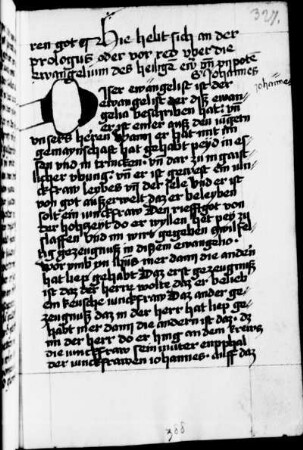 327.
ren got ꝛc Hie hebt sich an der
prologus oder vor red vber die
ewangelium des heiligen
S Johannes
Johannes
Diser ewangelist ist der
ewangelist der diß ewan-
gelia beschriben hat vn̄
er ist einer auß den iu̇gern
vnsers herren wann er hat mit im
gemainschafft hat gehabt peyd in es-
san vnd in trincken vn̄ dar zu in gaist-
licher vbung vn̄ er ist gewest ein iun-
ckfraw leybes vn̄ der sele vnd er ist
von got außerwelt daz er beleyben
solt ein iunckfraw Den rieff got von
der hohzeyt do er wolt en bey zu
slaffen vnd im wirt gegeben zwifel-
tig gezeugnuß in disem ewangelio
vor vmb in ihus mer dann die andern
hat liep gehabt Daz erst gezeugnuß
ist daz der herre wolte daz er belieb
ein keusche iunckfraw Daz ander ge-
zeugnuß daz in der herr hat liep ge-
habt mer dann die andern ist daz dz
im der herr do er hing an dem kreutz
die iunckfraw sein muter enpphal
der iunckfrawen iohannes auff daz
388